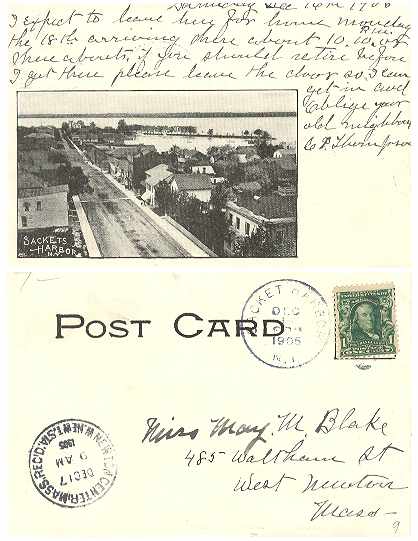 Saturday Dec 16th 1905
I expect to leave here for home monday
the 18th arriving there about 10.10 P.m. or
thereabouts, if you should retire before
I get there please leave the door so I can
get in and
oblige your
old neighbour
C P Thompson
SACKETS
HARBOR
N.Y.
POST CARD
SACKET HARBOR
DEC
1905
N.Y.
1 1
Miss May. M Blake
485 Waltham St
West Newton
Mass
NEWTON CENTER, MASS. REC'D.
DEC 17
9 AM
1905
9